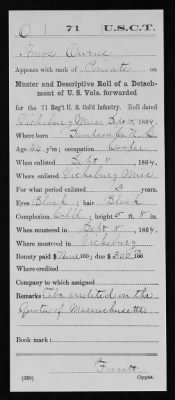 O 71 U.S.C.T.
Owens
Appears with rank of Private on
Muster and Descriptive Roll of a Detach-
ment of U. S. Vols. forwarded
for the 71 Reg't U. S. Col'd Infantry. Roll dated
Vicksburg Miss, Sept 15, 1864.
Where born Co, N.C.
Age 24 y'rs; occupation
When enlisted Sept 8, 1864.
Where enlisted Vicksburg Miss
For what period enlisted 3 years.
Eyes Black; hair Black
Complexion Col'd; height 5 ft. 8 in.
When mustered in Sept 8, 1864.
Where mustered in Vicksburg
Bounty paid $ None 100; due $ 300 100
Where credited
Company to which assigned
Remarks: To be credited on the
Quota of Massachusetts
Book mark:
(339) Copyist.